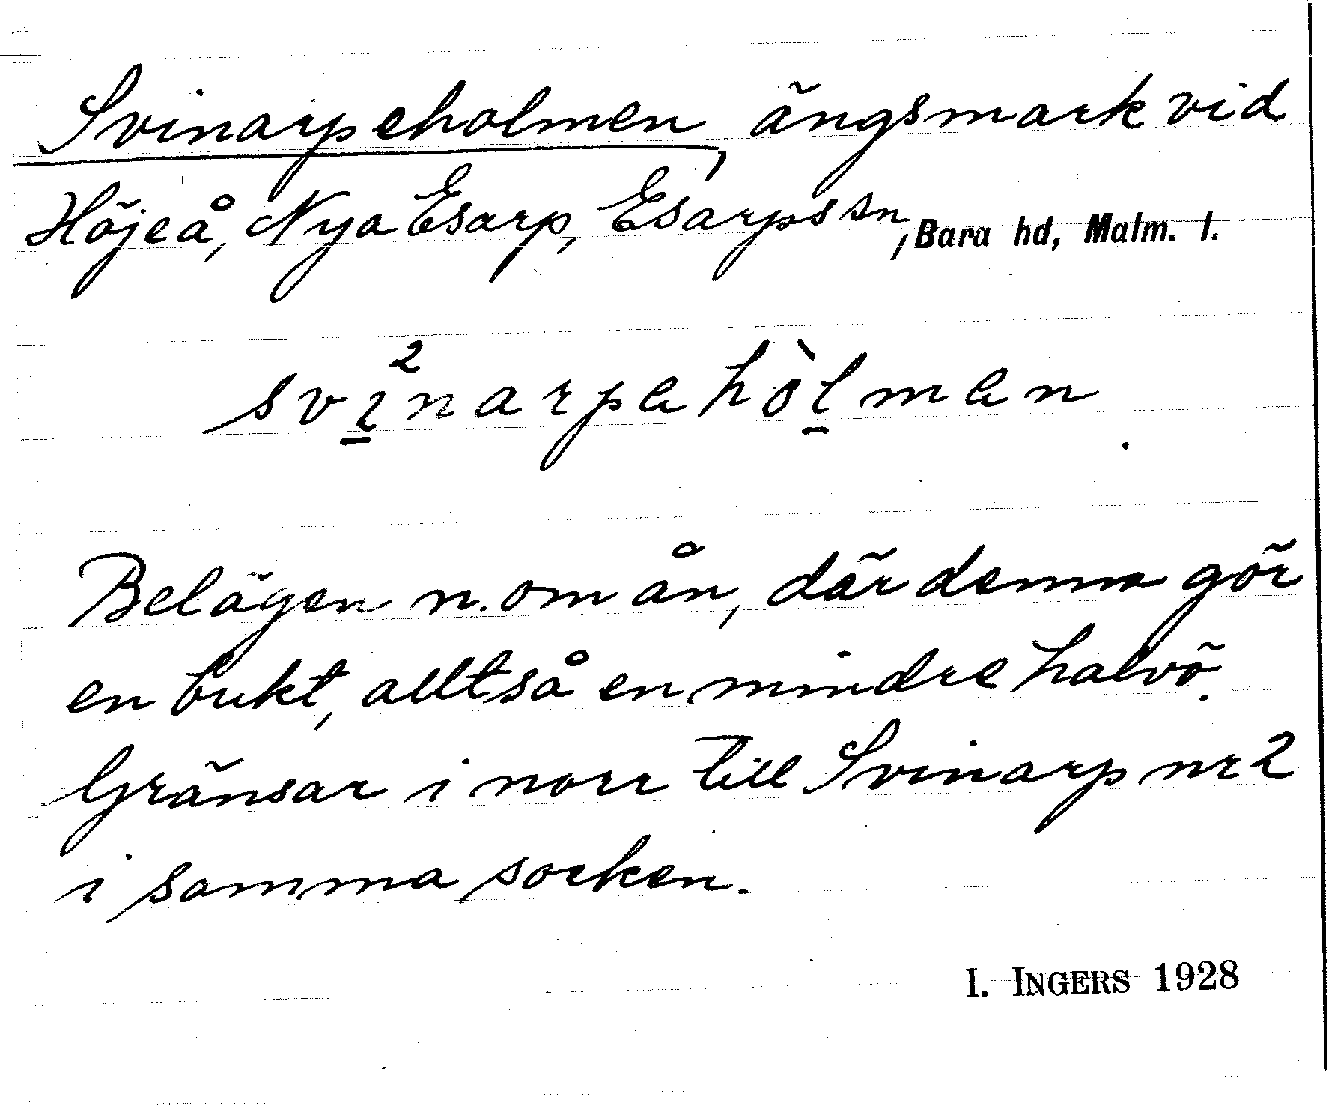 Svinarpeholmen, ängsmark vid
Höjeå, Nya Esarp, Esarps sn, Bara hd, Malm. l.
svi̱²narpəhòḻmən
Belägen n. om ån, där denna gör
en bukt, alltså en mindre halvö.
Gränsar i norr till Svinarp nr 2
i samma socken.
I. INGERS 1928